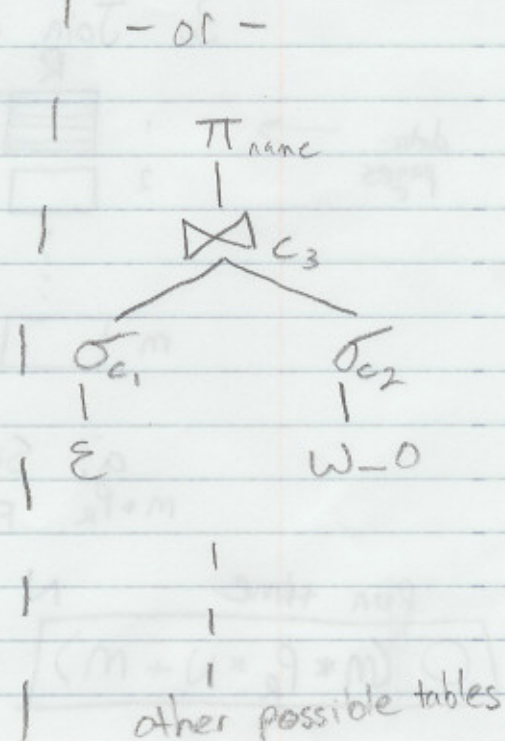 - or -
π name
⋈ c3
σc1 σc2
E W_O
other possible tables